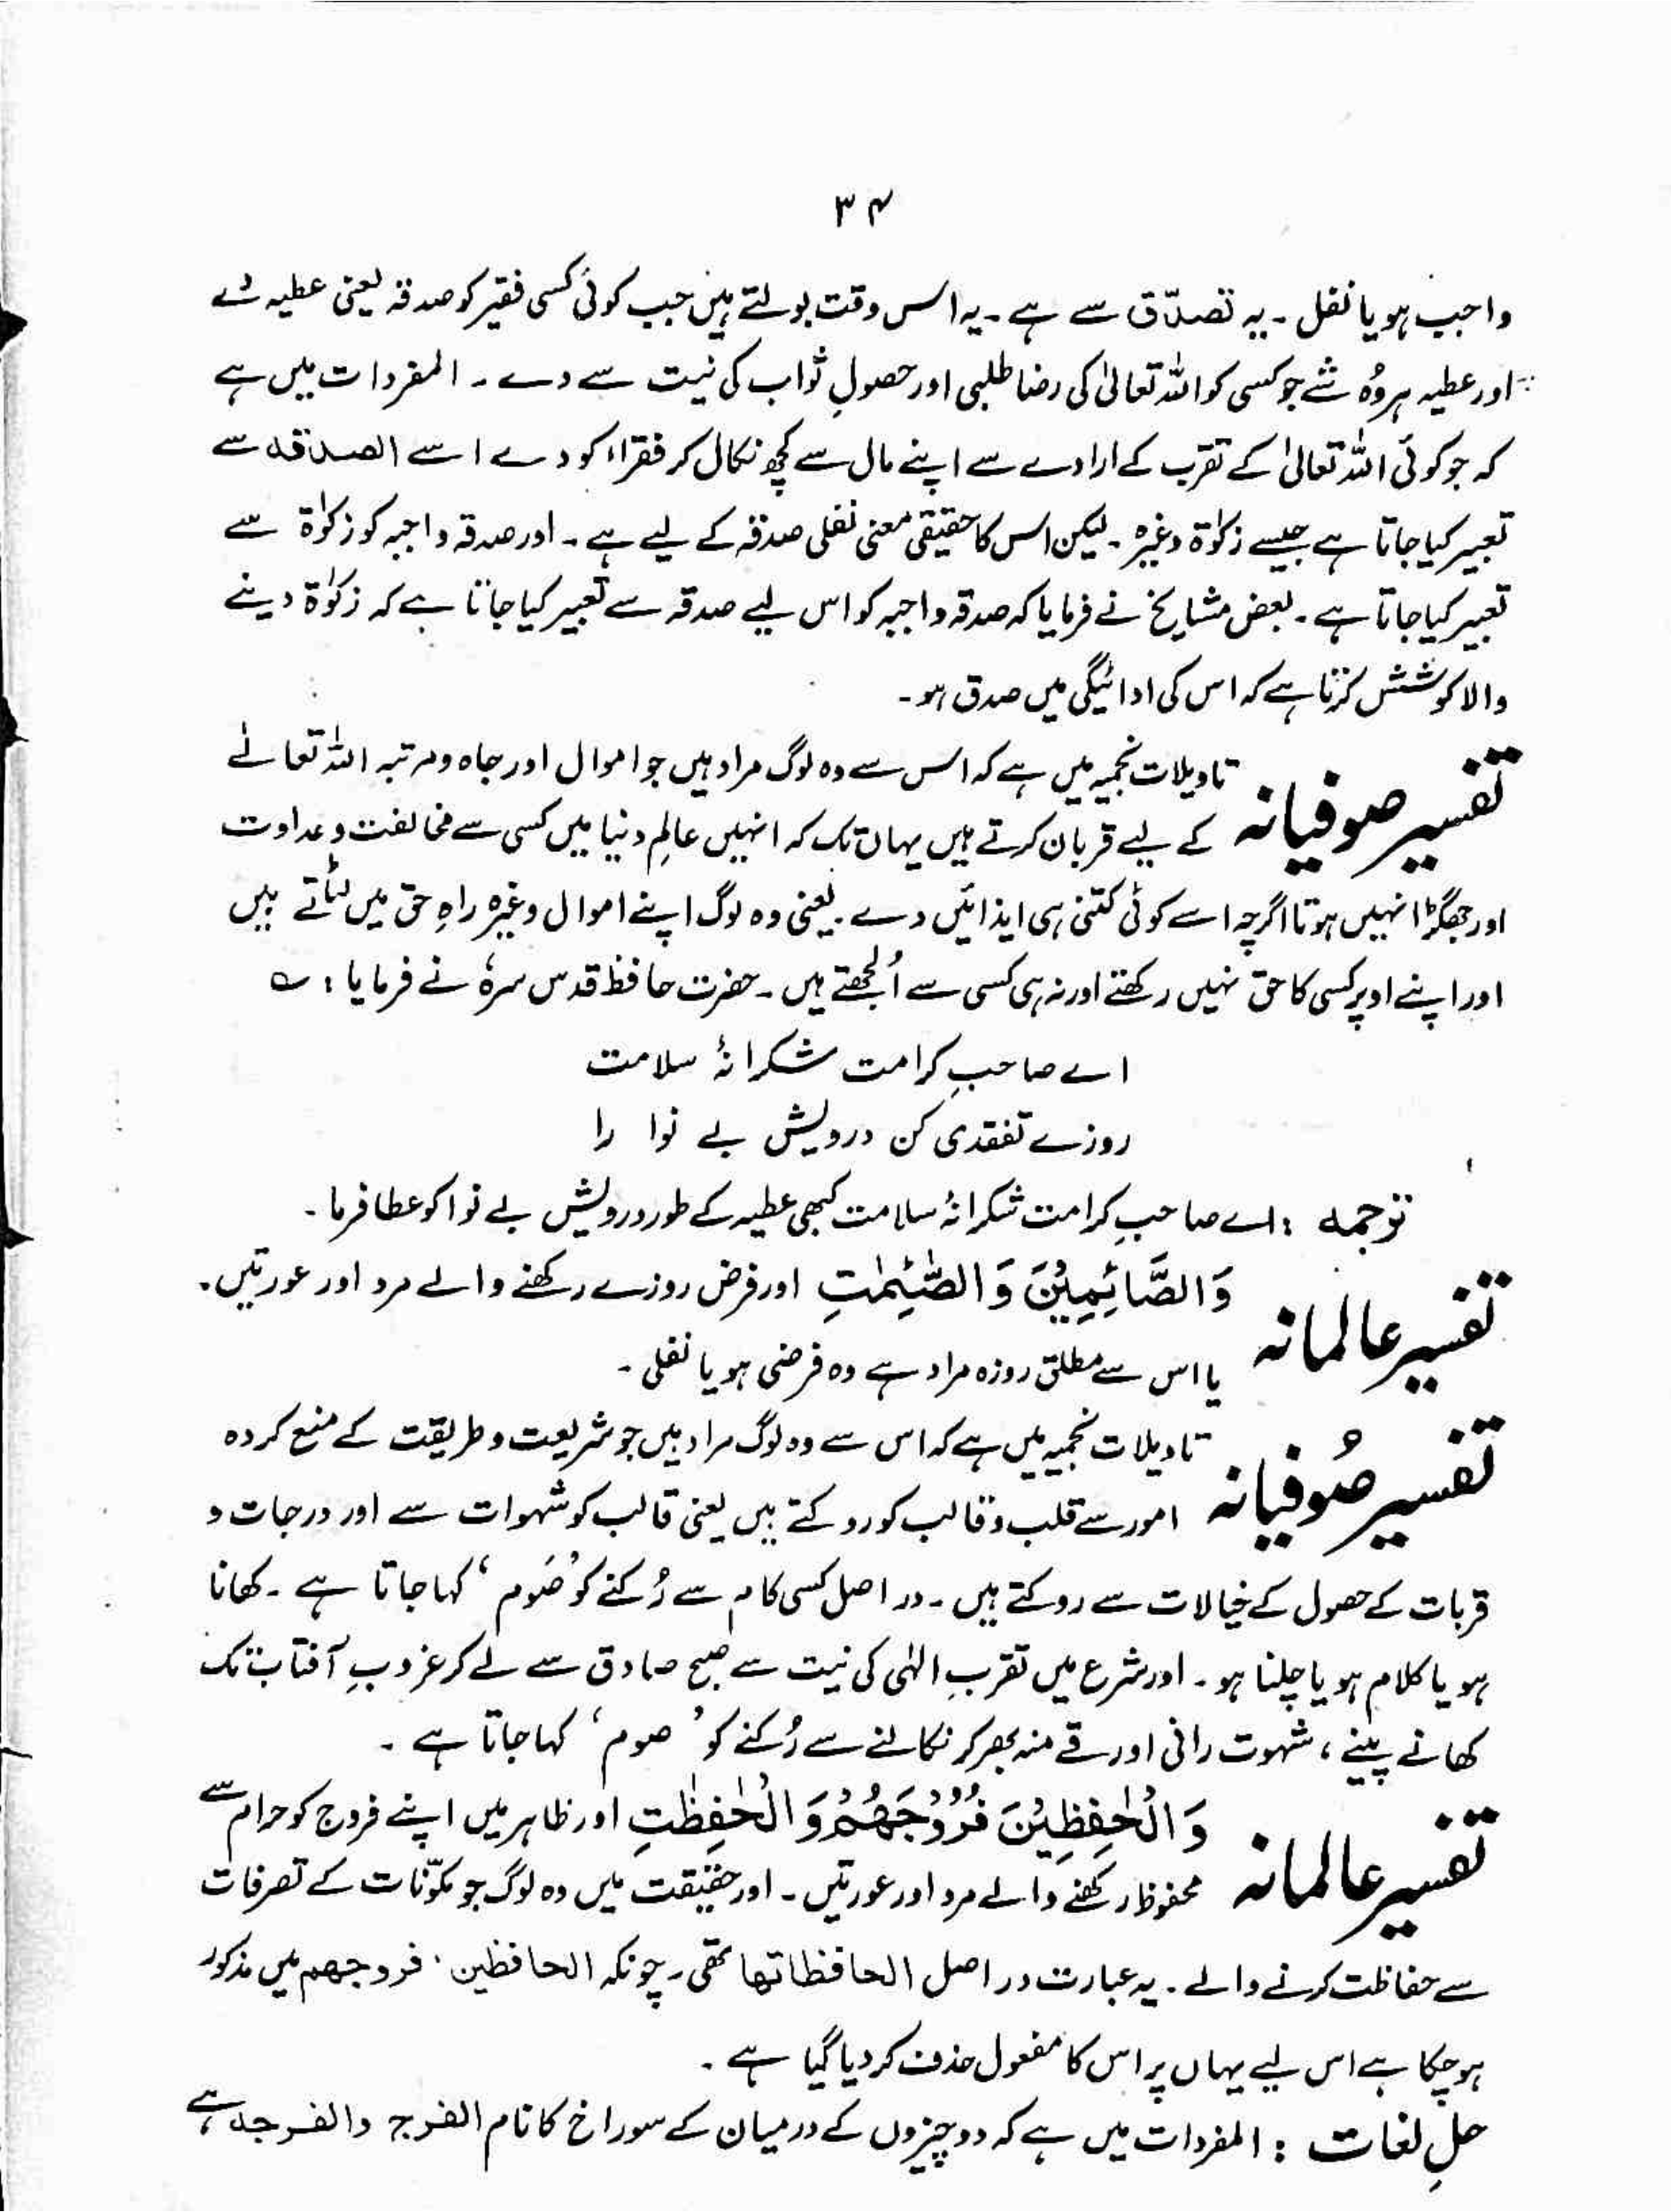 ۳۴
واجب ہو یا نفل ۔ یہ تصدّق سے ہے ۔ یہ اس وقت بولتے ہیں جب کوئی کسی فقیر کو صدقہ یعنی عطیہ دے
اور عطیہ ہر وُہ شے جو کسی کو اللہ تعالیٰ کی رضا طلبی اور حصولِ ثواب کی نیت سے دے ۔ المفردات میں ہے
کہ جو کوئی اللہ تعالیٰ کے تقرب کے ارادے سے اپنے مال سے کچھ نکال کر فقراء کو دے اسے الصدقہ سے
تعبیر کیا جاتا ہے جیسے زکوٰۃ وغیرہ ۔ لیکن اس کا حقیقی معنی نفلی صدقہ کے لیے ہے ۔ اور صدقہ واجبہ کو زکوٰۃ سے
تعبیر کیا جاتا ہے ۔ بعض مشایخ نے فرمایا کہ صدقہ واجبہ کو اس لیے صدقہ سے تعبیر کیا جاتا ہے کہ زکوٰۃ دینے
والا کوشش کرتا ہے کہ اس کی ادائیگی میں صدق ہو ۔
تفسیر صوفیانہ تاویلات نجمیہ میں ہے کہ اس سے وہ لوگ مراد ہیں جو اموال اور جاہ و مرتبہ اللہ تعالےٰ
کے لیے قربان کرتے ہیں یہاں تک کہ انہیں عالمِ دنیا میں کسی سے مخالفت و عداوت
اور جھگڑا نہیں ہوتا اگرچہ اسے کوئی کتنی ہی ایذائیں دے ۔ یعنی وہ لوگ اپنے اموال وغیرہ راہِ حق میں لٹاتے ہیں
اور اپنے اوپر کسی کا حق نہیں رکھتے اور نہ ہی کسی سے اُلجھتے ہیں ۔ حضرت حافظ قدس سرہٗ نے فرمایا : ؎
اے صاحبِ کرامت شکرانۂ سلامت
روزے تفقدی کن درویش بے نوا را
ترجمہ : اے صاحبِ کرامت شکرانۂ سلامت کبھی عطیہ کے طور درویش بے نوا کو عطا فرما ۔
تفسیر عالمانہ وَالصَّائِمِیْنَ وَالصّٰئِمٰتِ اور فرض روزے رکھنے والے مرد اور عورتیں ۔
یا اس سے مطلق روزہ مراد ہے وہ فرضی ہو یا نفلی ۔
تفسیر صُوفیانہ تاویلات نجمیہ میں ہے کہ اس سے وہ لوگ مراد ہیں جو شریعت و طریقت کے منع کردہ
امور سے قلب و قالب کو روکتے ہیں یعنی قالب کو شہوات سے اور درجات و
قربات کے حصول کے خیالات سے روکتے ہیں ۔ دراصل کسی کام سے رُکنے کو ’صَوم‘ کہا جاتا ہے ۔ کھانا
ہو یا کلام ہو یا چلنا ہو ۔ اور شرع میں تقربِ الٰہی کی نیت سے صبح صادق سے لے کر غروبِ آفتاب تک
کھانے پینے ، شہوت رانی اور قے منہ بھر کر نکالنے سے رُکنے کو ’صوم‘ کہا جاتا ہے ۔
تفسیر عالمانہ وَالْحٰفِظِیْنَ فُرُوْجَهُمْ وَالْحٰفِظٰتِ اور ظاہر میں اپنے فروج کو حرام سے
محفوظ رکھنے والے مرد اور عورتیں ۔ اور حقیقت میں وہ لوگ جو مکوّنات کے تصرفات
سے حفاظت کرنے والے ۔ یہ عبارت دراصل الحافظاتھا تھی ۔ چونکہ الحافظین فروجھم میں مذکور
ہو چکا ہے اس لیے یہاں پر اس کا مفعول حذف کر دیا گیا ہے ۔
حلِ لغات : المفردات میں ہے کہ دو چیزوں کے درمیان کے سوراخ کا نام الفرج والفرجہ ہے